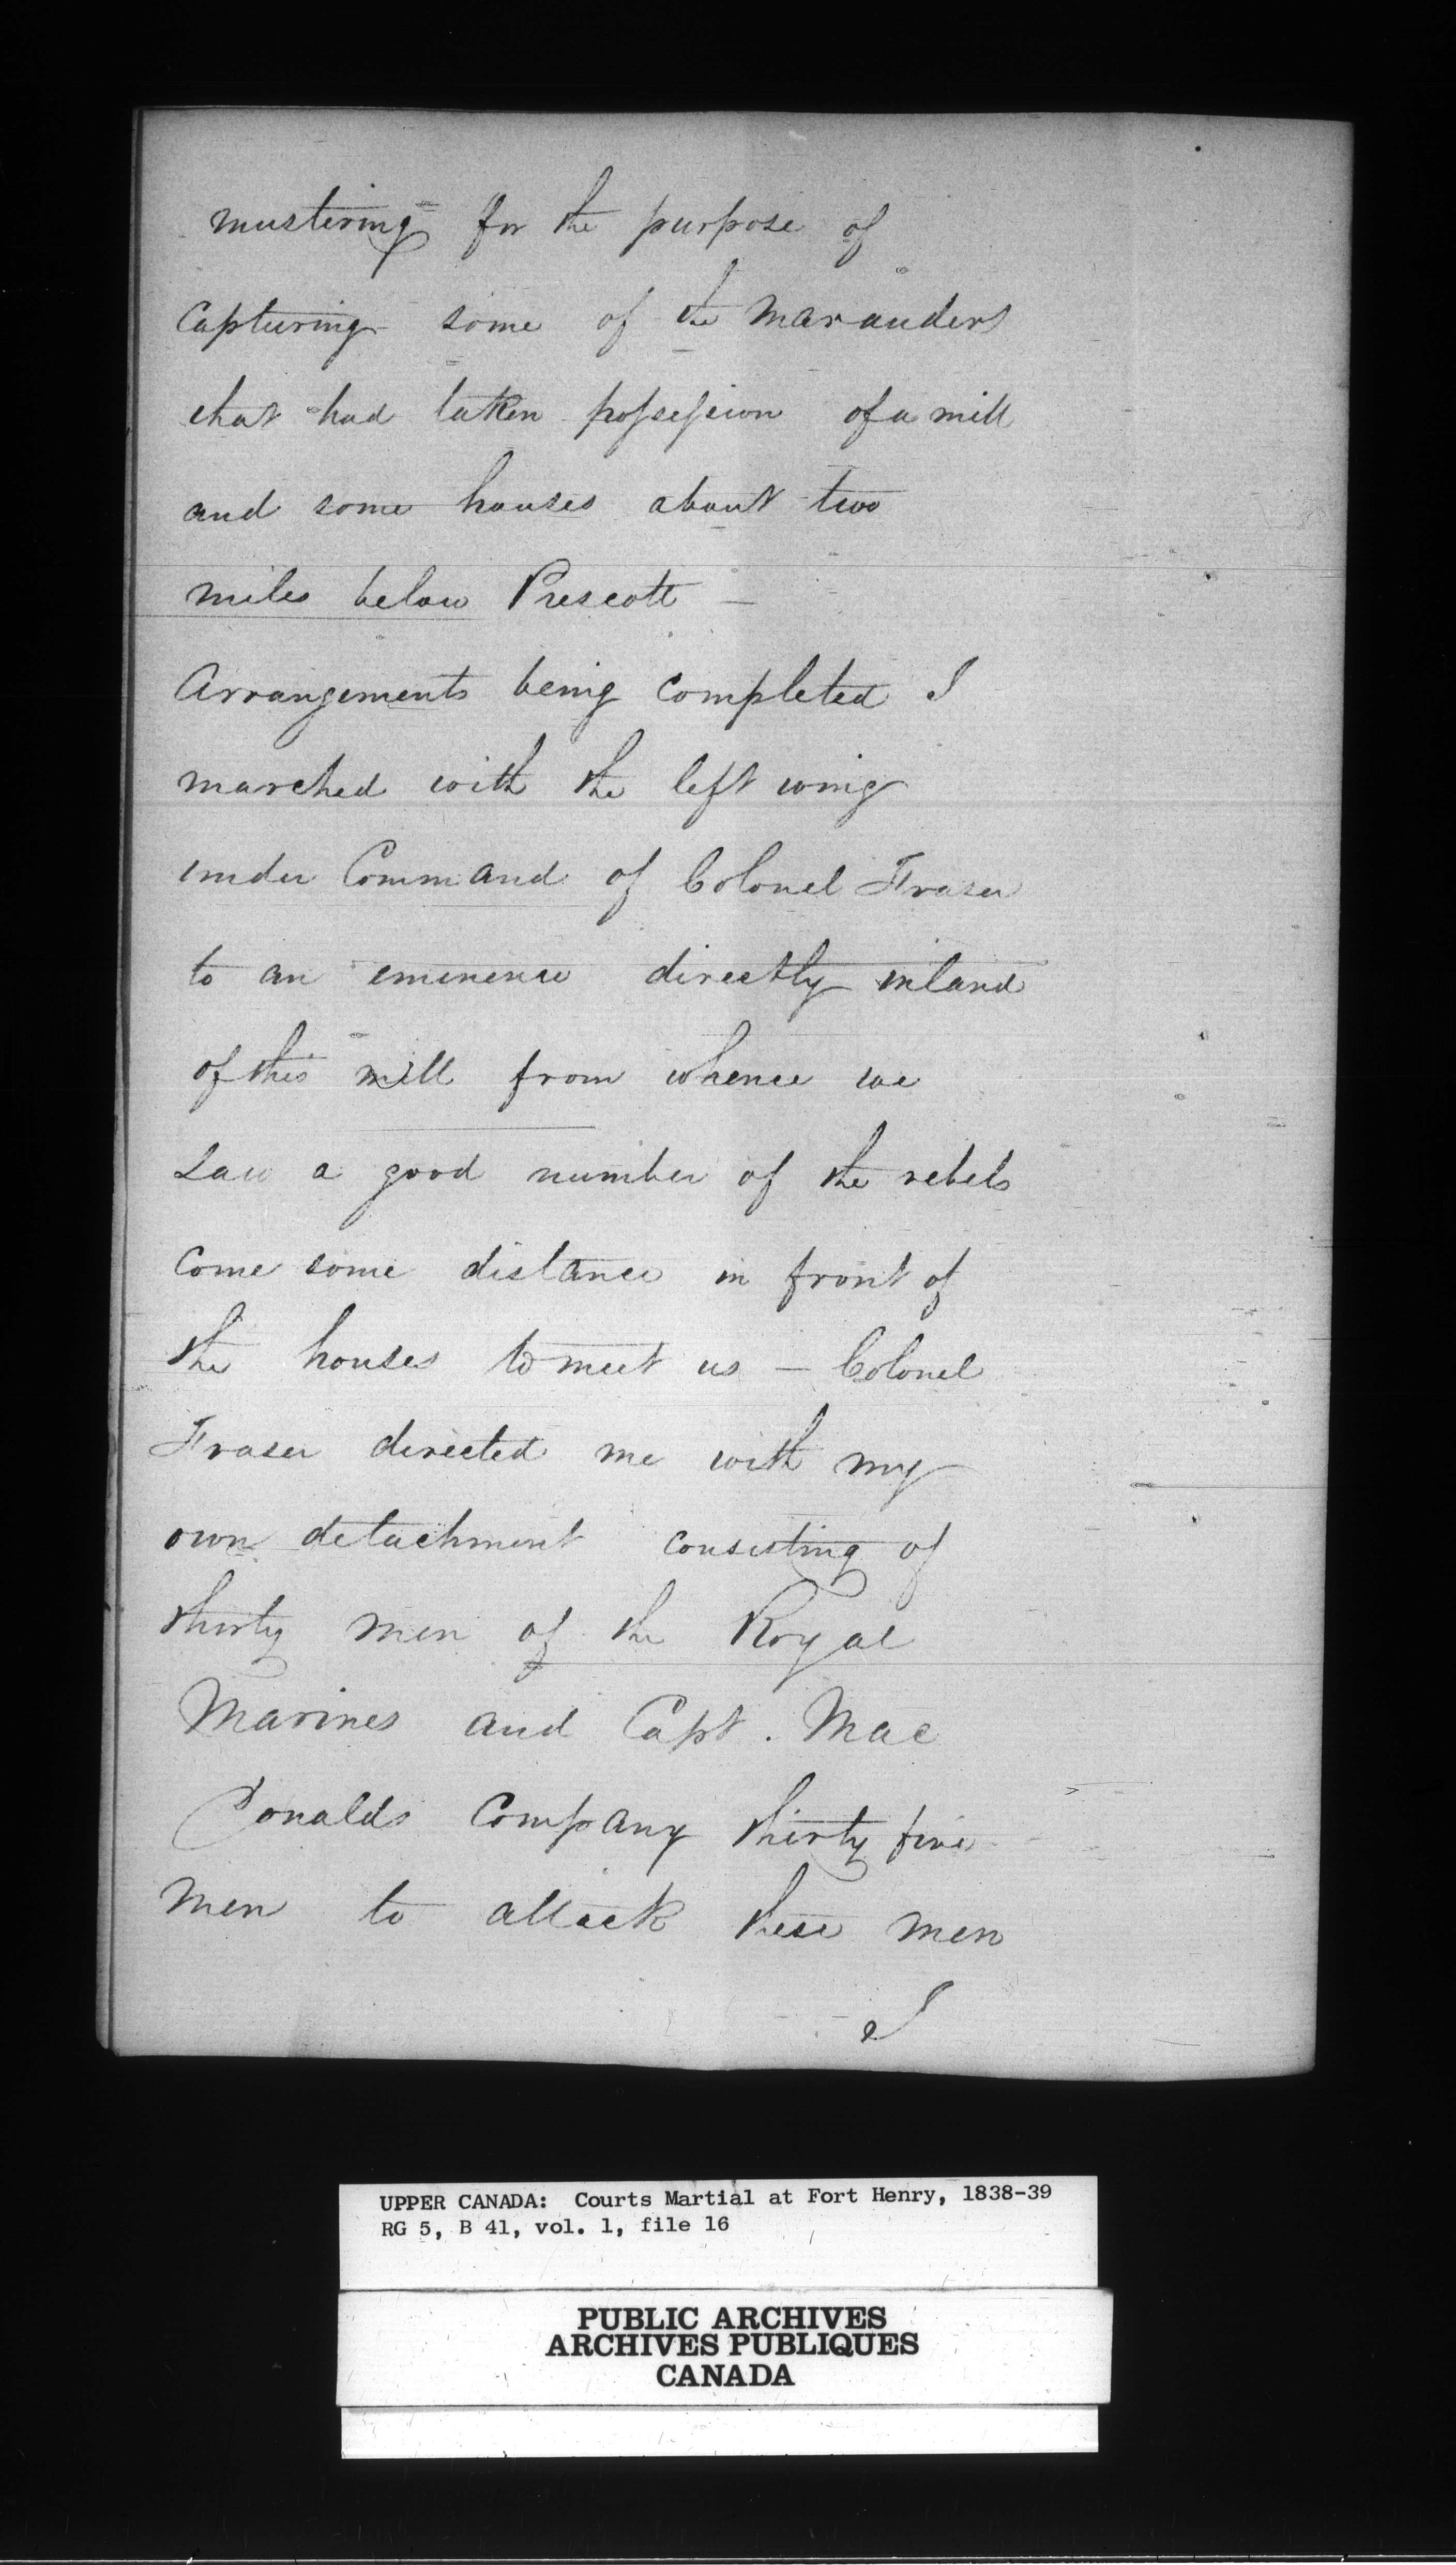 mustering for the purpose of
Capturing some of the Marauders
that had taken possession of a mill
and some houses about two
miles below Prescott —
Arrangements being completed I
marched with the left wing
under Command of Colonel Fraser
to an eminence directly inland
of this mill from whence we
Saw a good number of the rebels
Come some distance in front of
the houses to meet us — Colonel
Fraser directed me with my
own detachment consisting of
thirty men of the Royal
Marines and Capt. Mac
Donalds Company thirty five
Men to attack these men
I
UPPER CANADA: Courts Martial at Fort Henry, 1838-39
RG 5, B 41, vol. 1, file 16
PUBLIC ARCHIVES
ARCHIVES PUBLIQUES
CANADA